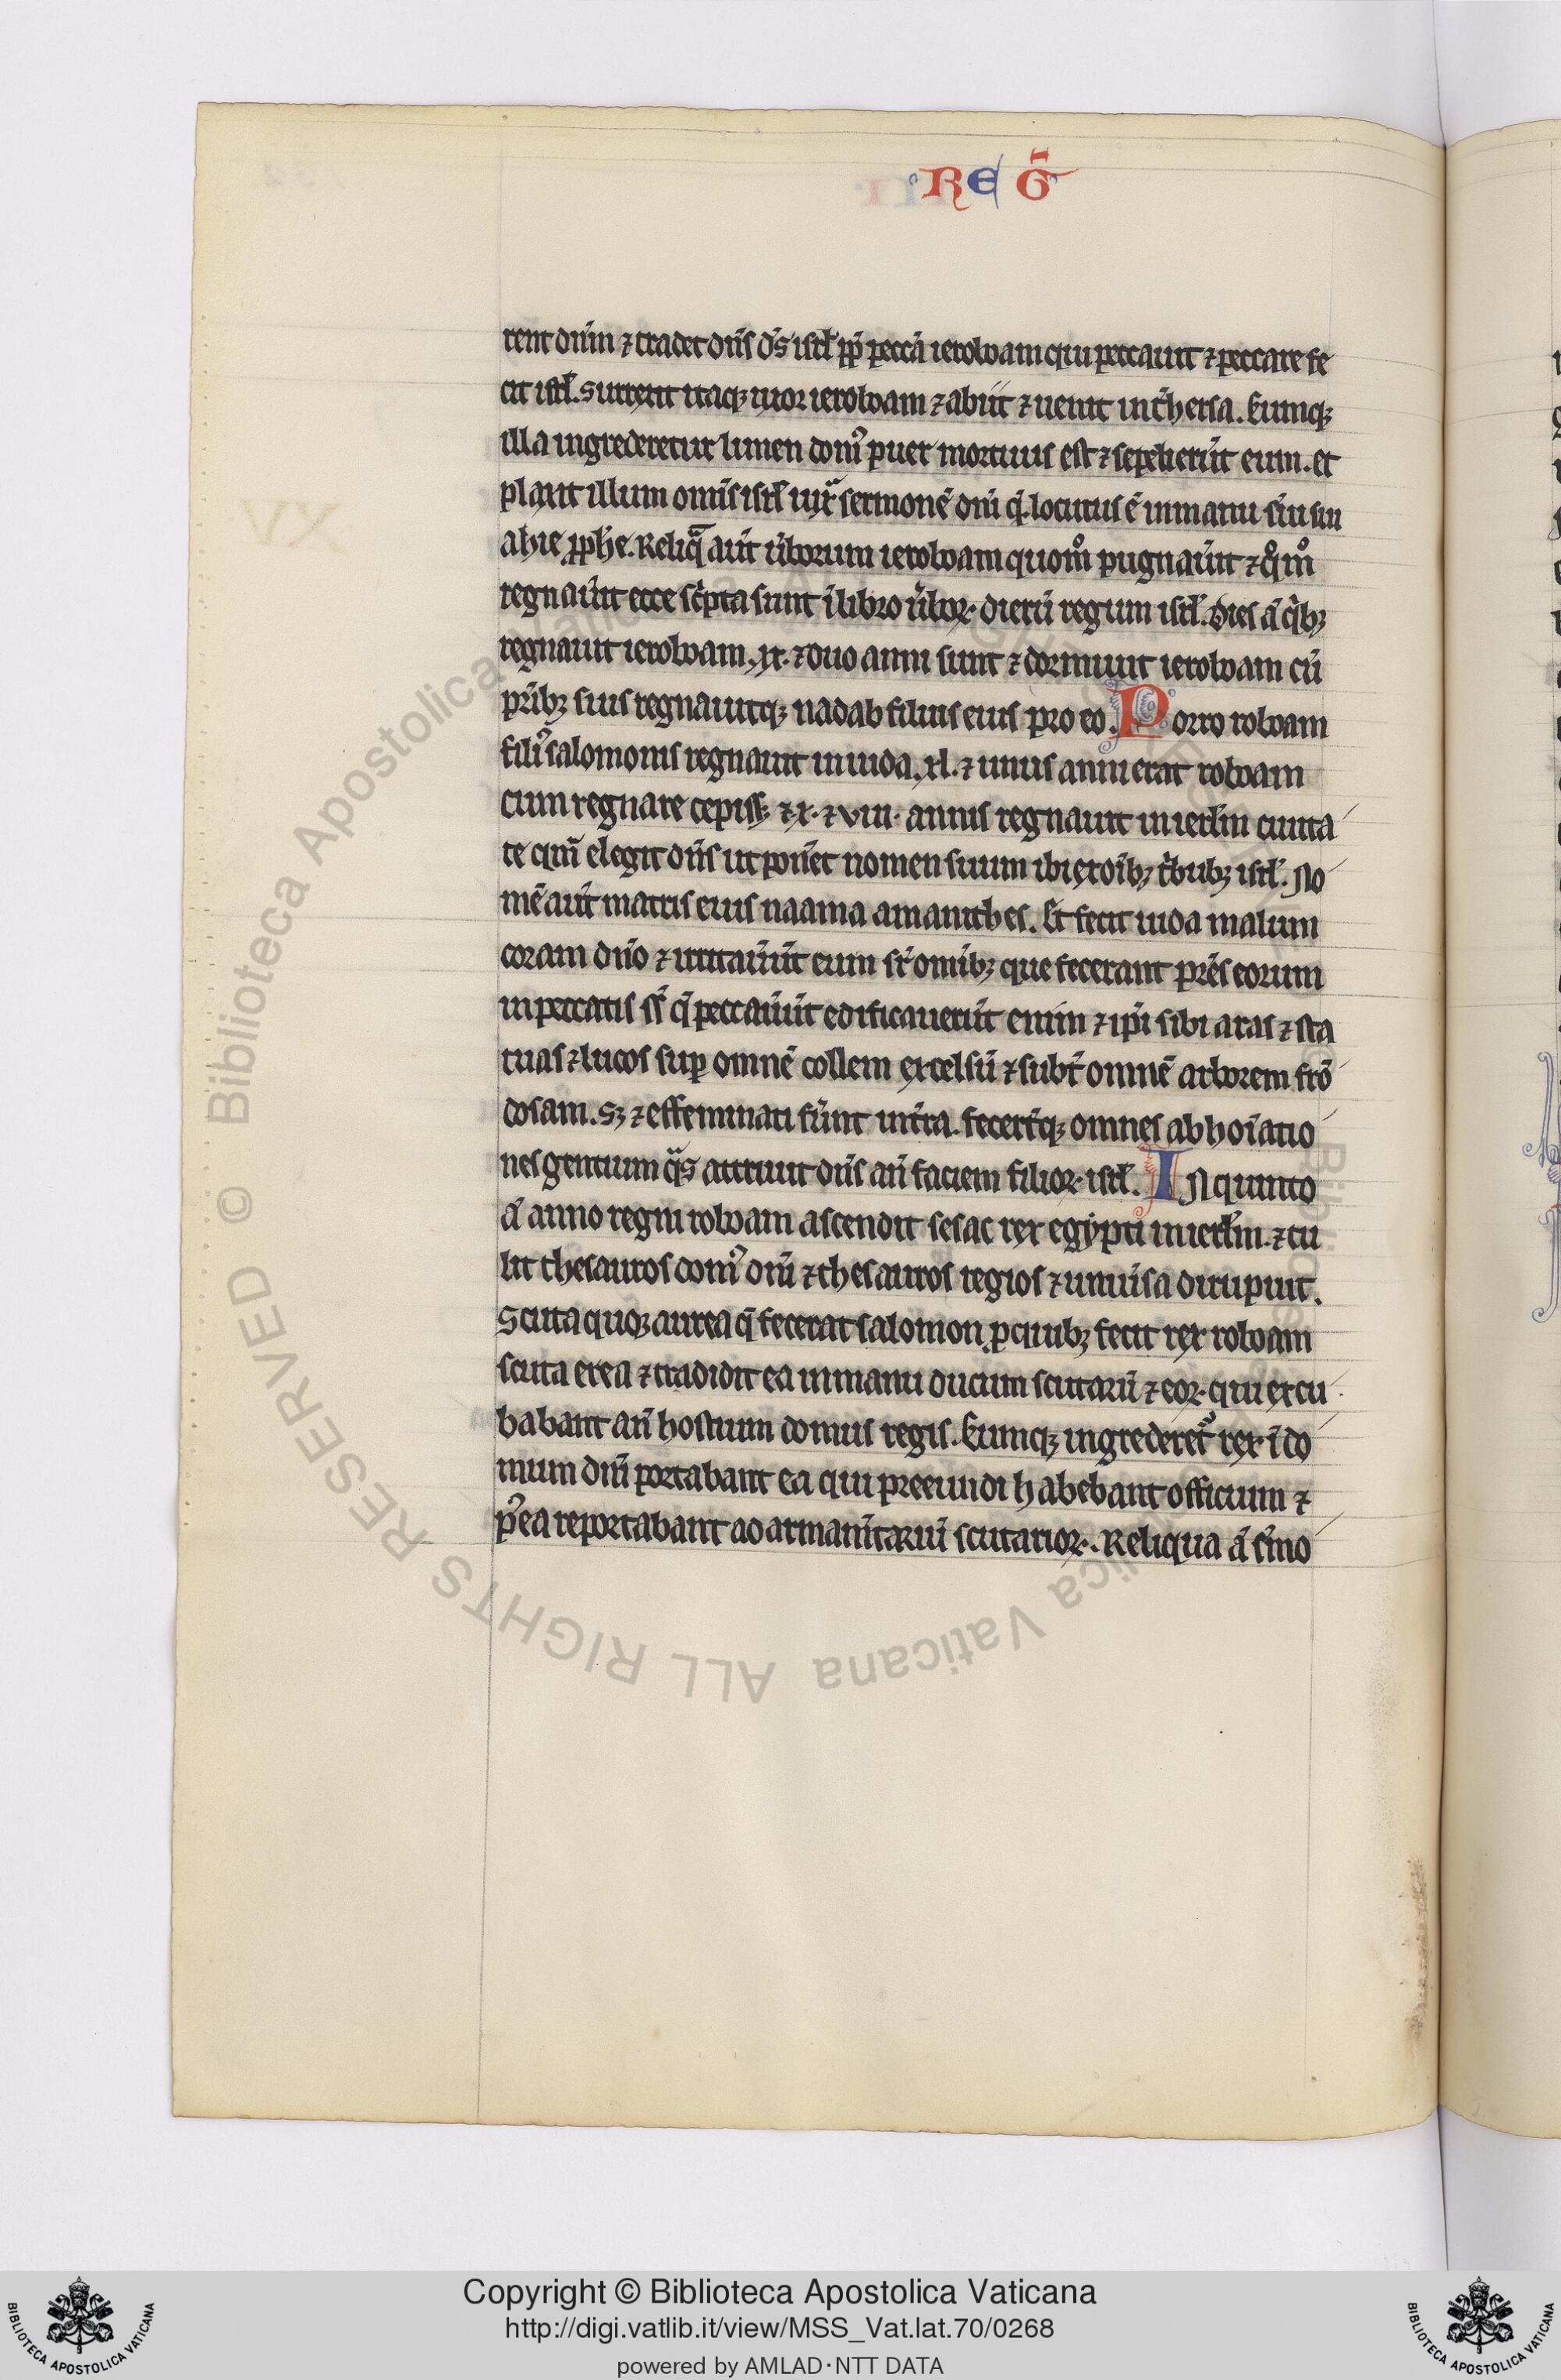 RE G̅
rent dn̄m ⁊ tradet dn̄s d̄s isrl̄ pp̄ pecca ieroboam qui peccauit ⁊ peccare fe
cit isrl̄. Surrexit itaq; uxor ieroboam ⁊ abiit ⁊ uenit in thersa. Cumq;
illa ingrederetur limen dom᷒ puer mortuus est ⁊ sepelierūt eum. et
planxit illum omīs isrl̄ iuxͣ sermonē dn̄i q̄ locutus ē in manu s̄ui sui
ahie ꝓph̄e. Reliqͣ aūt ūborum ieroboam quom̊ pugnaūit ⁊ q̊m̊
regnaūit ecce sc̄pta sunt ī libro ūboꝝ dierū regum isrl̄. Dies ā qͥb;
regnauit ieroboam. xx. ⁊ duo anni sunt ⁊ dormiuit ieroboam cū
p̄rib; suis regnauitq; nadab filius eius pro eo. Porro roboam
fili᷒ salomonis regnauit in iuda. xl. ⁊ unius anni erat roboam
cum regnare cepiss; ⁊ x. ⁊ vii. annis regnauit in ierl̄m ciuita
te qm̄ elegit dn̄s ut pon̄et nomen suum ibi ex oīb; t̄bub; isrl̄. No
mē aūt matris eius naama amanithes. Et fecit iuda malum
coram dn̄o ⁊ irritaūūt eum sr̄ omīb; que fecerant pr̄es eorum
in peccatis ss̄ q̄ peccaūūt edificauerūt enim ⁊ ip̄i sibi aras ⁊ sta
tuas ⁊ lucos suꝑ omnē collem excelsū ⁊ subt̄ omnē arborem frō
dosam. S; ⁊ effeminati fūnt in t̄ra. fecerūtq; omnes abhoīatio
nes gentium qͣs attriuit dn̄s an̄ faciem filioꝝ isrl̄. IN quinto
ā anno regni roboam ascendit sesac rex egypti in ierl̄m. ⁊ tu
lit thesauros dom᷒ dn̄i ⁊ thesauros regios ⁊ uniūsa diripuit.
Scuta quoq; aurea q̄ fecerat salomon. ꝑ quib; fecit rex roboam
scuta erea ⁊ tradidit ea in manu ducum scutariū ⁊ eoꝝ qui excu
babant an̄ hostium domus regis. Cumq; ingrederet᷑ rex ī do
mum dn̄i portabant ea qui preeundi habebant officium ⁊
p᷒ea reportabant ad armamtarium scutarioꝝ. Reliqua ā s̄mo
© Biblioteca Apostolica Vaticana ALL RIGHTS RESERVED
Copyright © Biblioteca Apostolica Vaticana
http://digi.vatlib.it/view/MSS_Vat.lat.70/0268
powered by AMLAD·NTT DATA
BIBLIOTECA APOSTOLICA VATICANA
BIBLIOTECA APOSTOLICA VATICANA